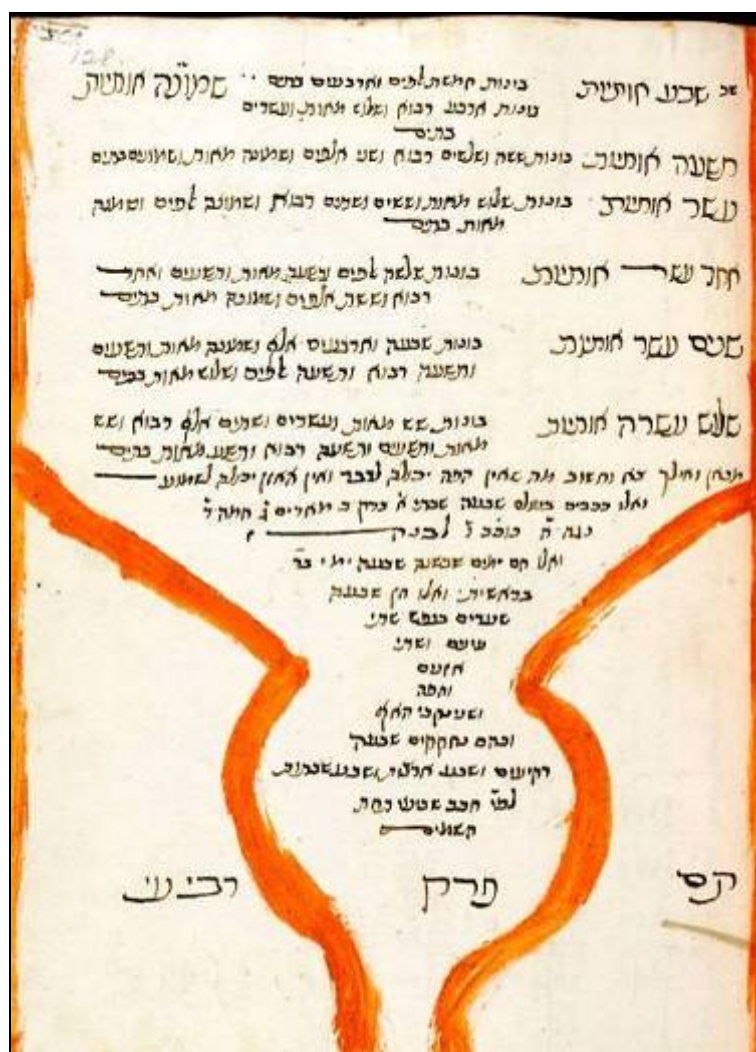 שבע אותיות בונות חמשת אלפים וארבעים בתים שמונה אותיות
בונות ארבע רבוא ושלוש מאות ועשרים
בתים
תשעה אותיות בונות ששה ושלשים רבוא ושני אלפים ושמונה מאות ושמונים בתים
עשר אותיות בונות שלוש מאות וששים ושתים רבוא ושמונה אלפים ושמונה
מאות בתים
אחד עשר אותיות בונות שלשה אלפים ותשע מאות ותשעים ואחד
רבוא וששת אלפים ושמונה מאות בתים
שנים עשר אותיות בונות שבעה וארבעים אלף ושמונה מאות ותשעים
ותשעה רבוא ותשעה אלפים ושלוש מאות בתים
שלש עשרה אותיות בונות שש מאות ועשרים ושתים אלף רבוא ושש
מאות ותשעים ותשעה רבוא ותשע מאות בתים
מכאן ואילך צא וחשוב מה שאין הפה יכולה לדבר ואין האוזן יכולה לשמוע
ואלו ככבים בעולם שבעה שבתי א ברק ב מאדים ג חמה ד
נגה ה כוכב ו לבנה ז
ואלו הם ימים שבשנה שבעה ימי בר
בראשית ואלו הן שבעה
שערים בנפש שתי
עינים ושתי
אזנים
ופה
ושני נקבי האף
ובהם נחקקים שבעה
רקיעים ושבע ארצות ושבע שבתות
תחת
השמים
פרק רביעי